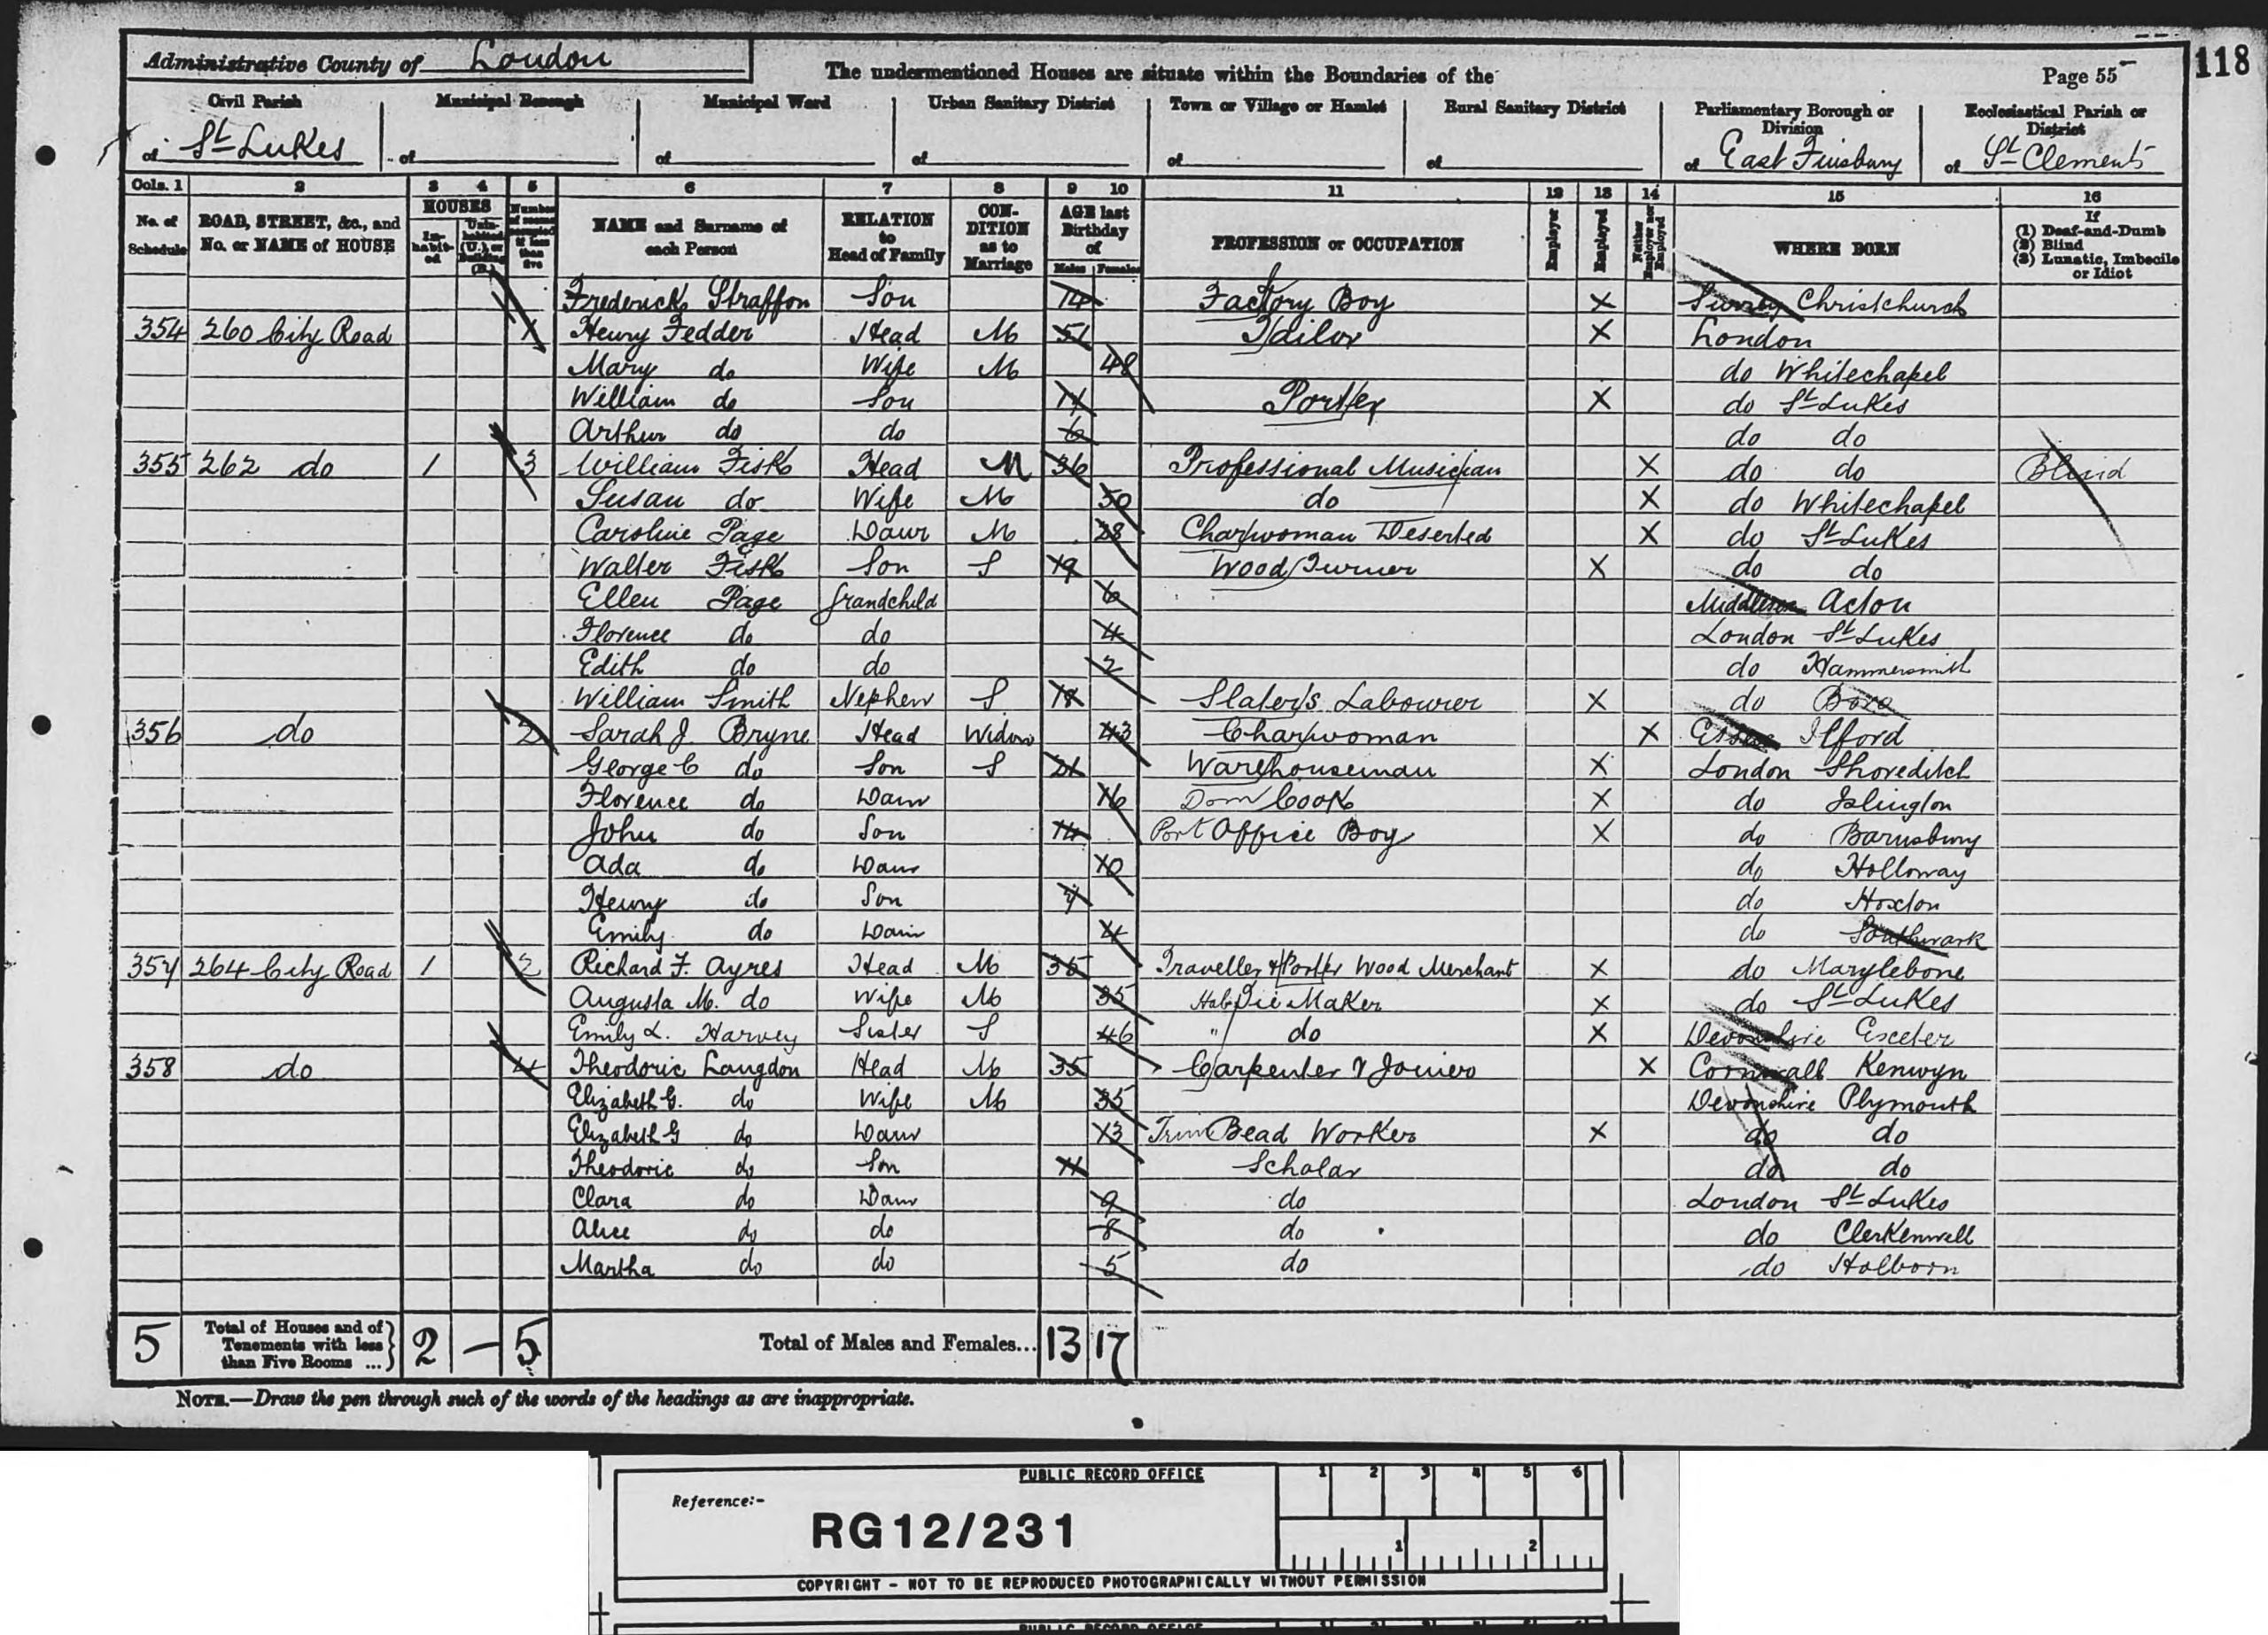 Administrative County of London
The undermentioned Houses are situate within the Boundaries of the
Page 55
118
Civil Parish of St Lukes
Municipal Borough of
Municipal Ward of
Urban Sanitary District of
Town or Village or Hamlet of
Rural Sanitary District of
Parliamentary Borough or Division of East Finsbury
Ecclesiastical Parish or District of St Clements
Cols. 1 2 3 4 5 6 7 8 9 10 11 12 13 14 15 16
No. of Schedule
ROAD, STREET, &c., and No. or NAME of HOUSE
HOUSES
In-habit-ed
Unin-habited (U.), or Building (B.)
Number of rooms occupied if less than five
NAME and Surname of each Person
RELATION to Head of Family
CON-DITION as to Marriage
AGE last Birthday of
Males Females
PROFESSION or OCCUPATION
Employer
Employed
Neither Employer nor Employed
WHERE BORN
If
(1) Deaf-and-Dumb
(2) Blind
(3) Lunatic, Imbecile or Idiot
Frederick Straffon Son 14 Factory Boy X Surrey Christchurch
354 260 City Road 1 Henry Fedder Head M 51 Tailor X London
Mary do Wife M 48 do Whitechapel
William do Son 14 Porter X do St Lukes
Arthur do do 6 do do
355 262 do 1 3 William Fisk Head M 36 Professional Musician X do do Blind
Susan do Wife M 50 do X do Whitechapel
Caroline Page Daur M 28 Charwoman Deserted X do St Lukes
Walter Fisk Son S 19 Wood Turner X do do
Ellen Page Grandchild 6 Middlesex Acton
Florence do do 4 London St Lukes
Edith do do 2 do Hammersmith
William Smith Nephew S 18 Slater's Labourer X do Boro
356 do 2 Sarah J. Bryne Head Widow 43 Charwoman X Essex Ilford
George C do Son S 21 Warehouseman X London Shoreditch
Florence do Daur 16 Dom Cook X do Islington
John do Son 14 Port Office Boy X do Barnsbury
Ada do Daur 10 do Holloway
Henry do Son 7 do Hoxton
Emily do Daur 4 do Southwark
357 264 City Road 1 2 Richard F. Ayres Head M 35 Traveller & Porter Wood Merchant X do Marylebone
Augusta M. do Wife M 35 Hab Tie Maker X do St Lukes
Emily L. Harvey Sister S 46 " do X Devonshire Exeter
358 do 4 Theodoric Langdon Head M 35 Carpenter & Joiner X Cornwall Kenwyn
Elizabeth G. do Wife M 35 Devonshire Plymouth
Elizabeth G do Daur 13 Trim Bead Worker X do do
Theodoric do Son 11 Scholar do do
Clara do Daur 9 do London St Lukes
Alice do do 8 do do Clerkenwell
Martha do do 5 do do Holborn
5 Total of Houses and of Tenements with less than Five Rooms ... 2 — 5 Total of Males and Females... 13 17
NOTE.—Draw the pen through such of the words of the headings as are inappropriate.
PUBLIC RECORD OFFICE
1 2 3 4 5 6
Reference:-
RG12/231
1 2
COPYRIGHT - NOT TO BE REPRODUCED PHOTOGRAPHICALLY WITHOUT PERMISSION
PUBLIC RECORD OFFICE